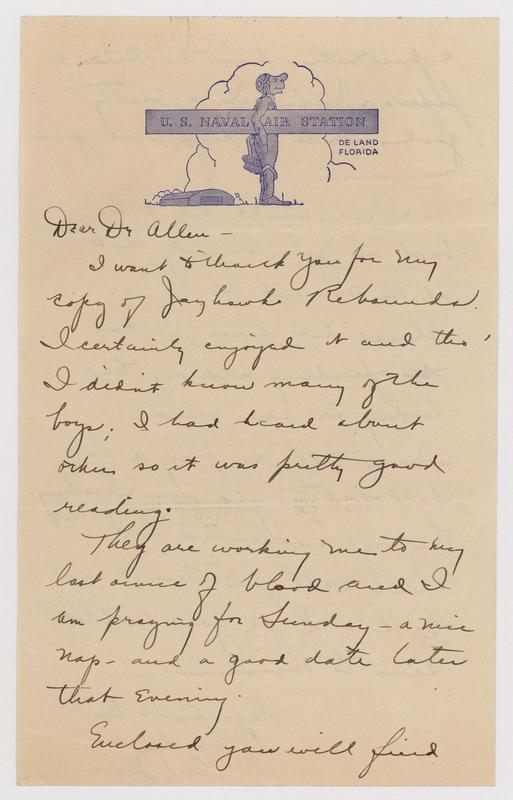 U. S. NAVAL AIR STATION
DE LAND
FLORIDA
Dear Dr Allen -
I want to thank you for my
copy of Jayhawk Rebounds.
I certainly enjoyed it and tho'
I didn't know many of the
boys, I had heard about
others so it was pretty good
reading.
They are working me to my
last ounce of blood and I
am praying for Sunday - a nice
nap - and a good date later
that evening.
Enclosed you will find